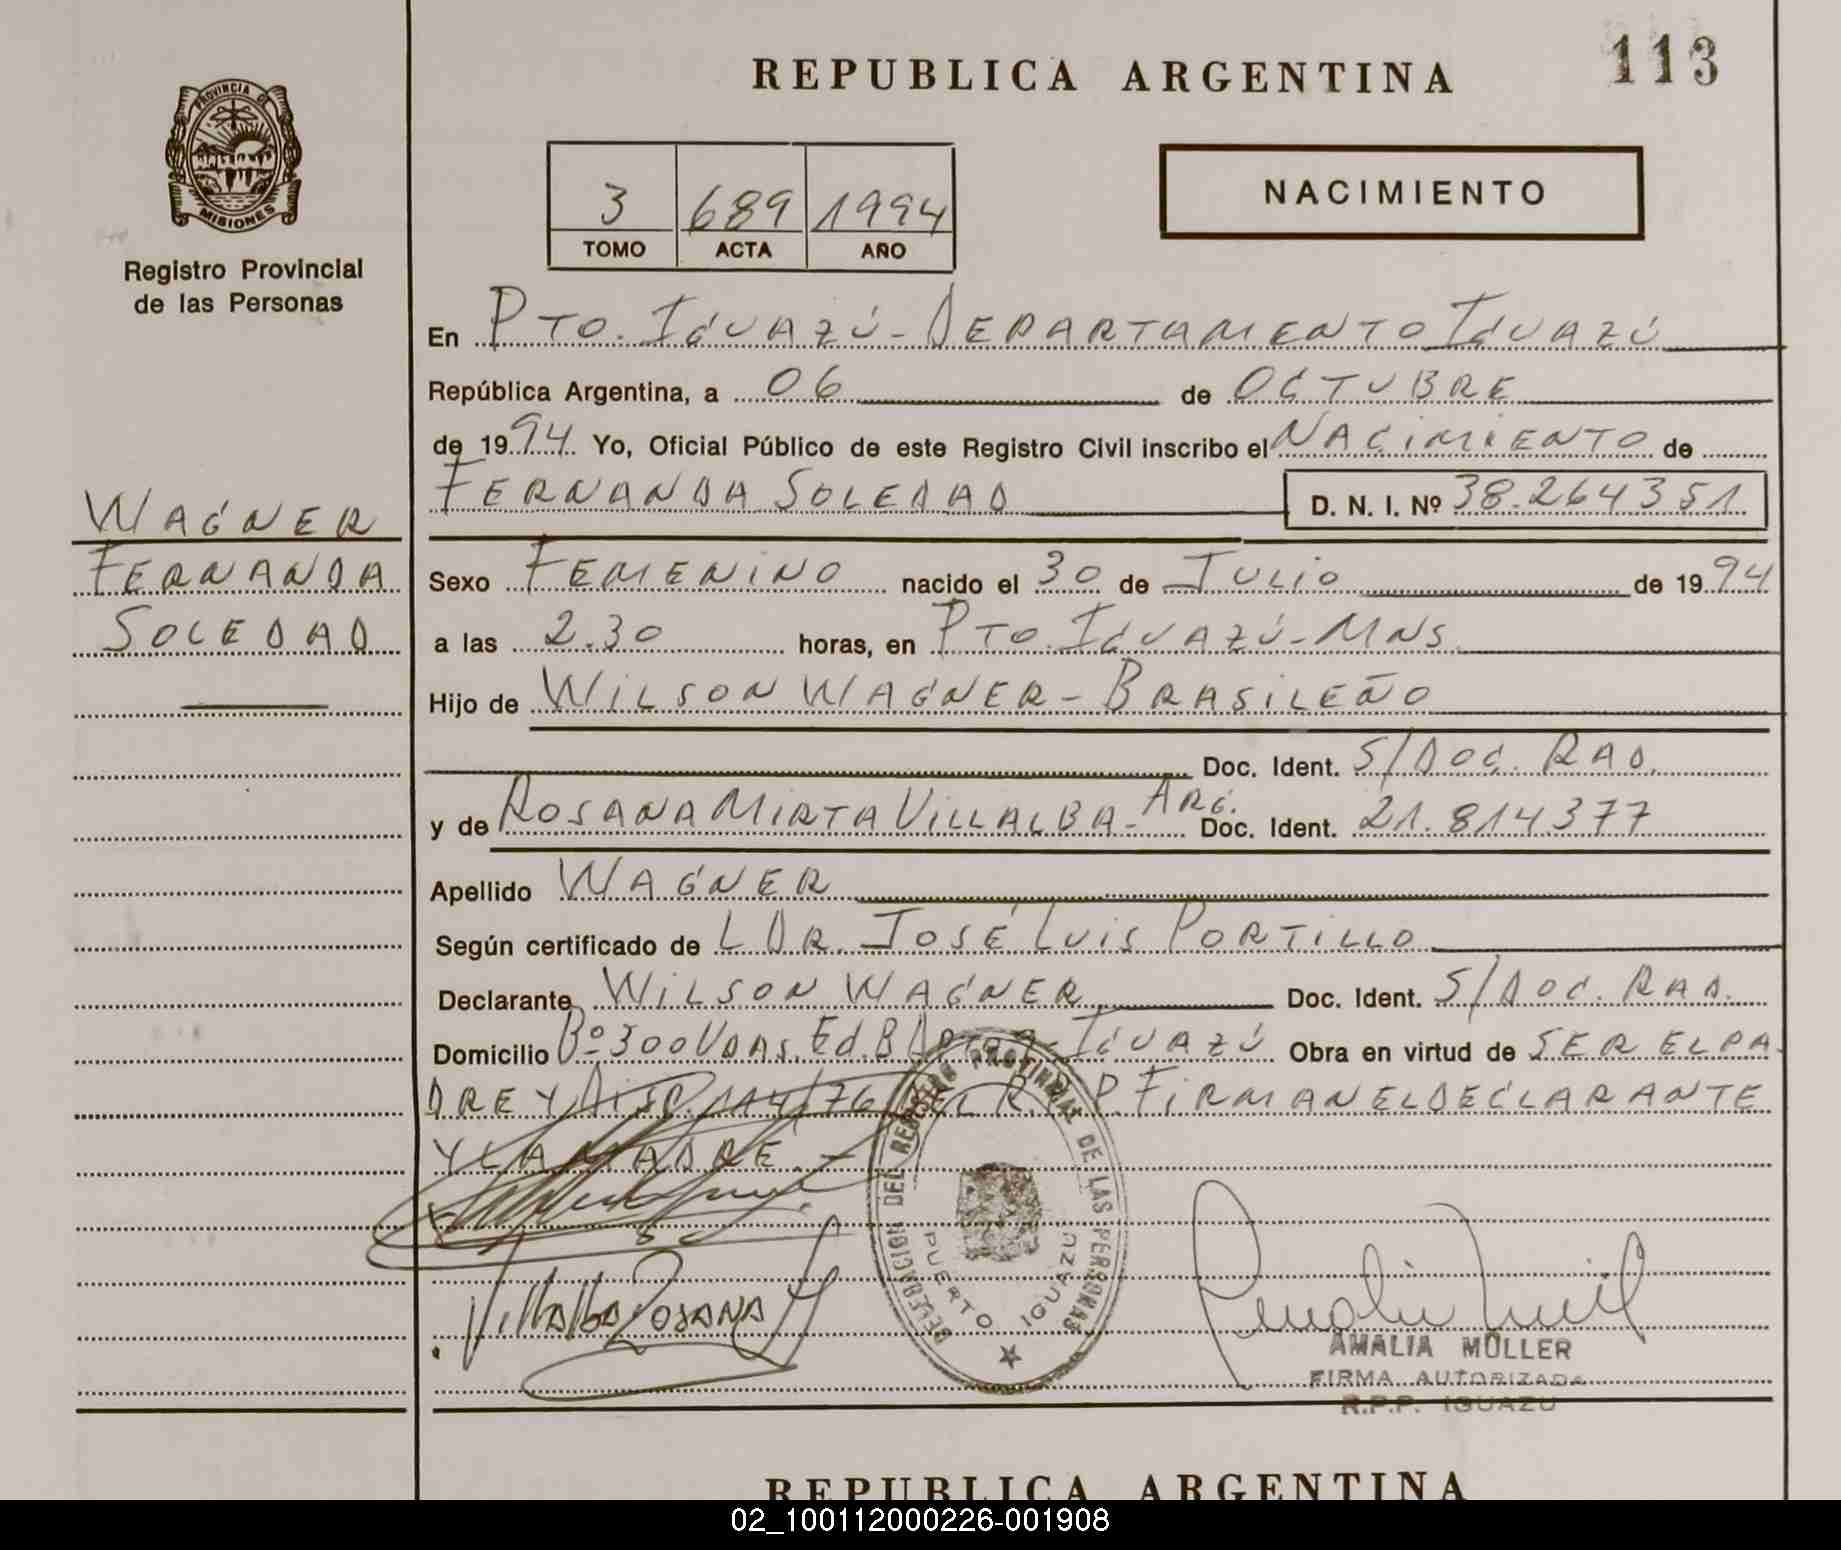 REPUBLICA ARGENTINA
113
PROVINCIA DE
MISIONES
Registro Provincial
de las Personas
3 689 1994
TOMO ACTA AÑO
NACIMIENTO
En PTO. IGUAZÚ - DEPARTAMENTO IGUAZÚ
República Argentina, a 06 de OCTUBRE
de 1994 Yo, Oficial Público de este Registro Civil inscribo el NACIMIENTO de
FERNANDA SOLEDAD D. N. I. Nº 38.264351
WAGNER
FERNANDA
SOLEDAD
Sexo FEMENINO nacido el 30 de JULIO de 1994
a las 2.30 horas, en PTO. IGUAZÚ - MNS.
Hijo de WILSON WAGNER - BRASILEÑO
Doc. Ident. S/DOC. RAD.
y de ROSANA MIRTA VILLALBA - ARG. Doc. Ident. 21.814377
Apellido WAGNER
Según certificado de L DR. JOSÉ LUIS PORTILLO
Declarante WILSON WAGNER Doc. Ident. S/DOC. RAD.
Domicilio Bº 300 VDAS. Ed. B IGUAZÚ Obra en virtud de SER EL PA
DRE Y DISP. 114/76 FIRMAN EL DECLARANTE
Y LA MADRE. -
DELEGACION DEL REGISTRO PROVINCIAL DE LAS PERSONAS
PUERTO IGUAZU
Villalba Rosana M
AMALIA MÜLLER
FIRMA AUTORIZADA
R.P.P. IGUAZU
REPUBLICA ARGENTINA
02_100112000226-001908